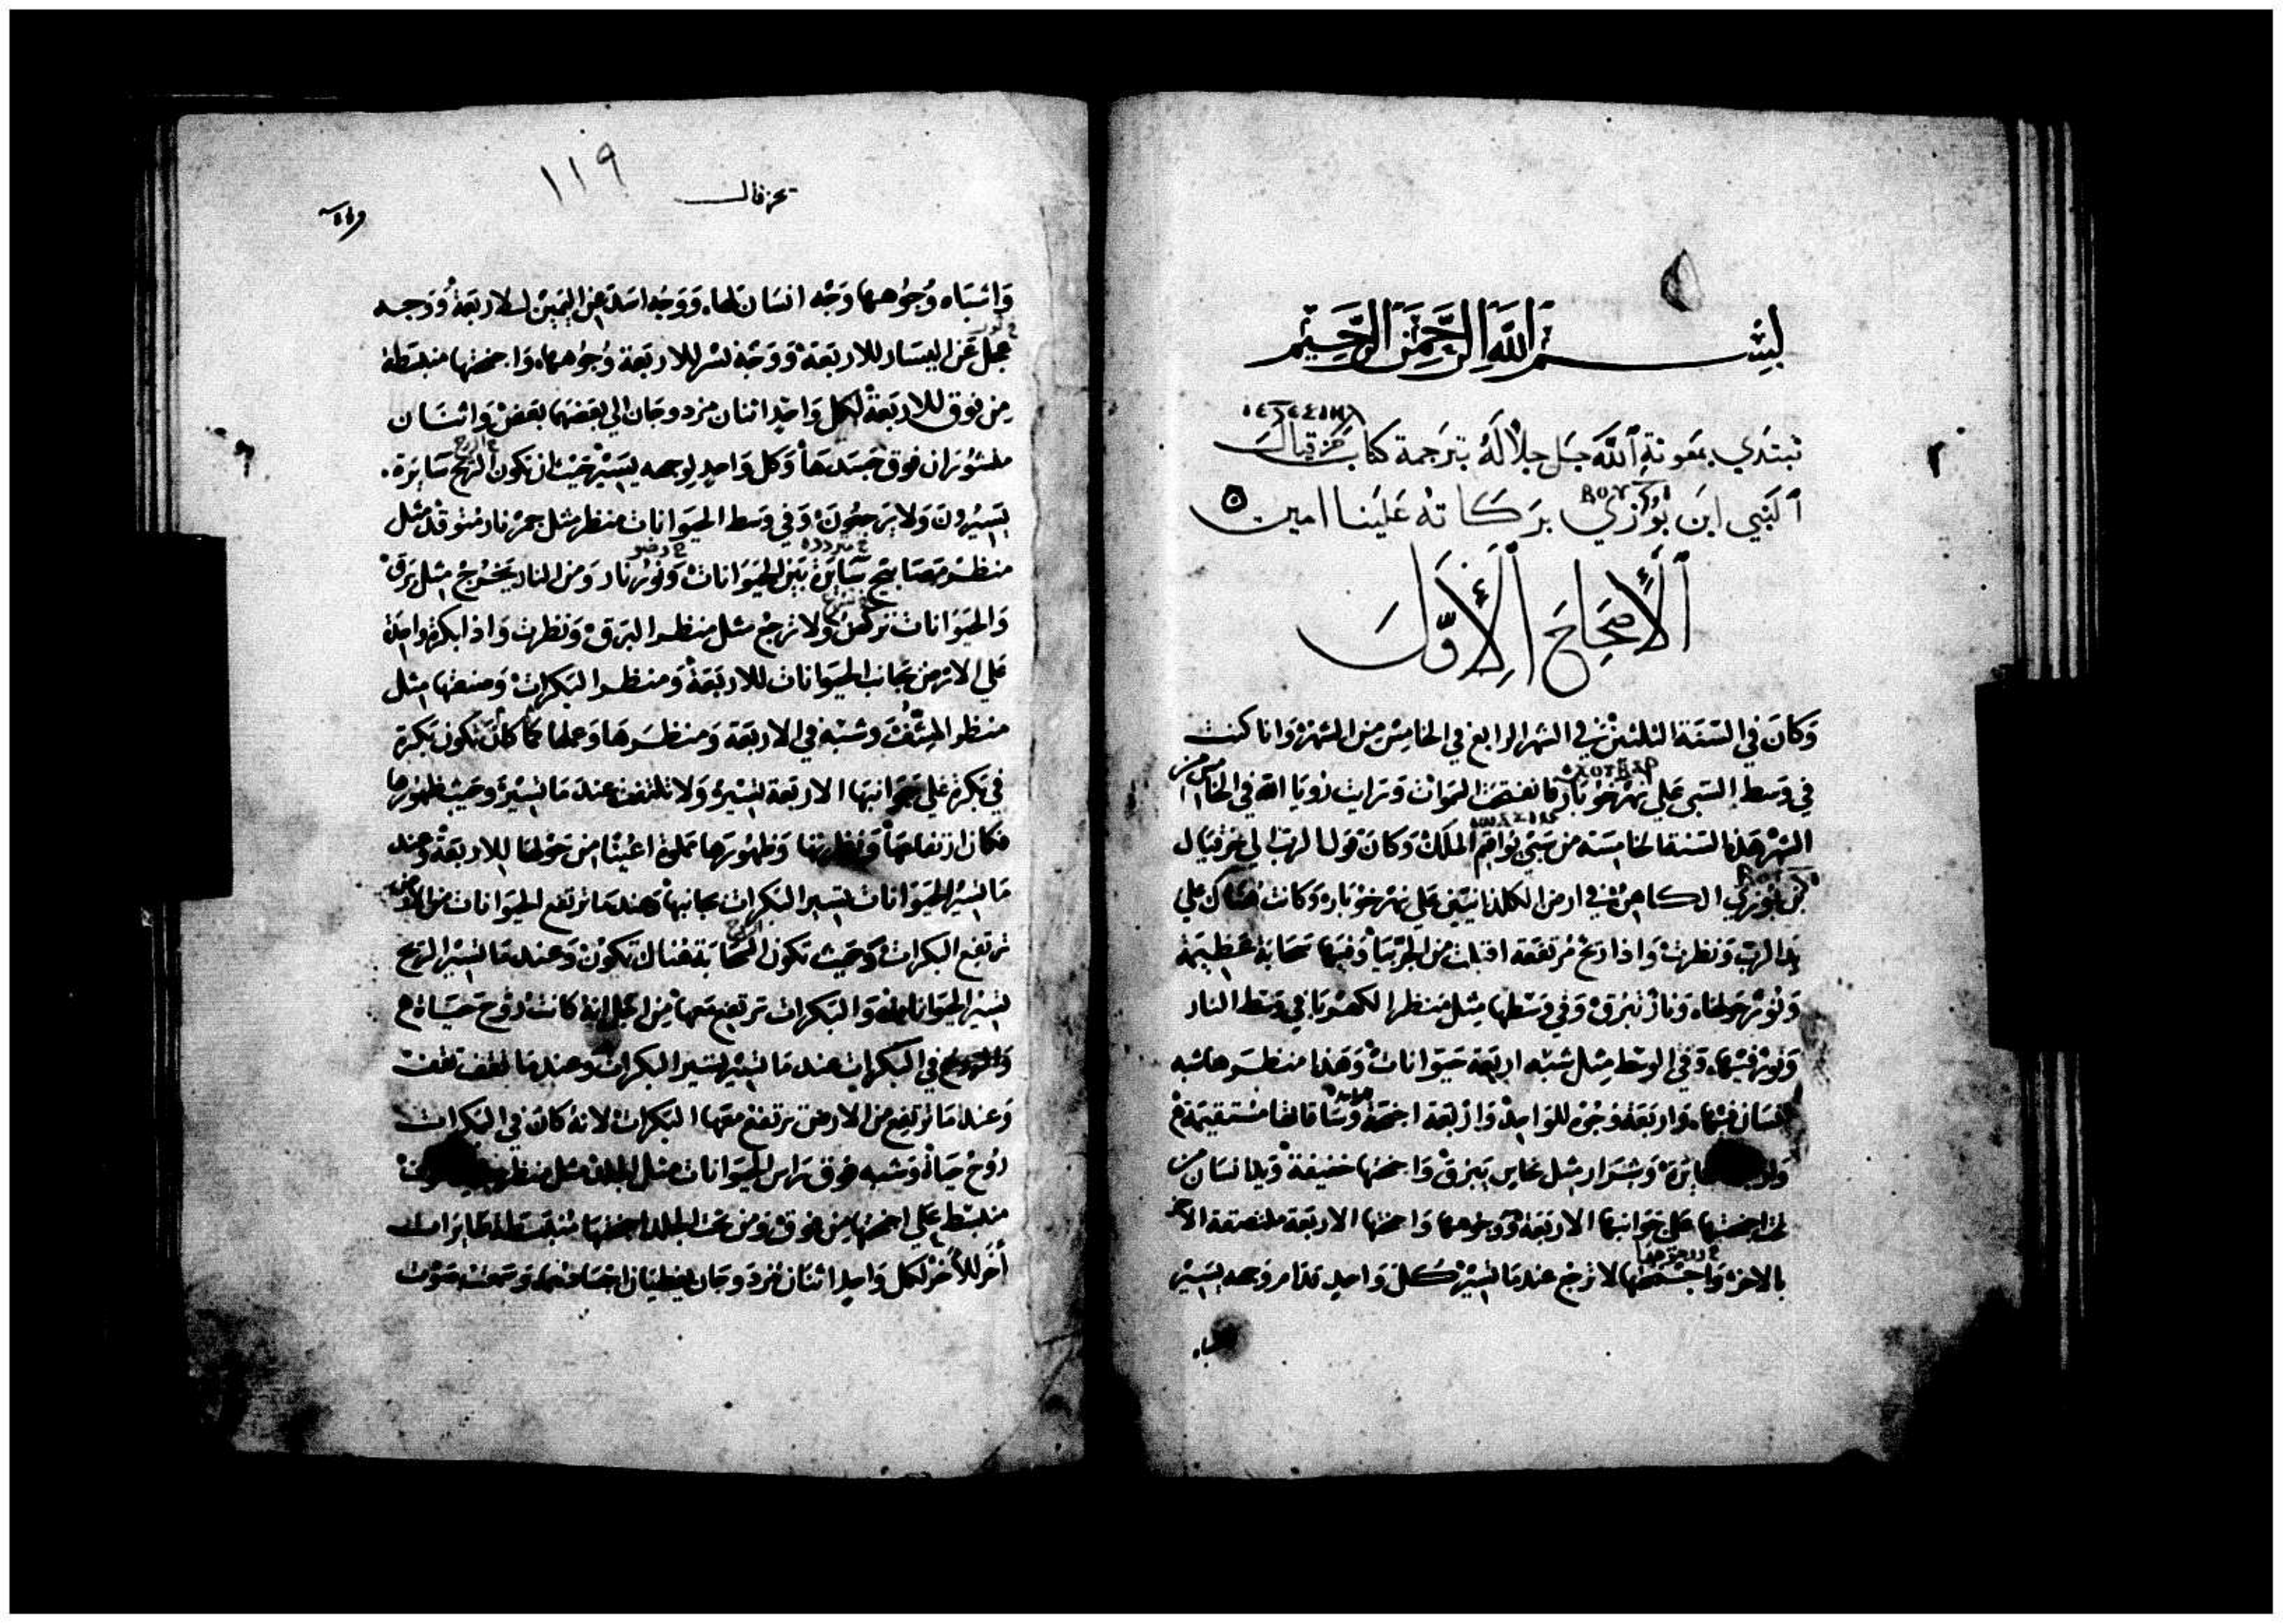 بسم الله الرحمن الرحيم
نبتدي بمعونة الله جل جلاله بترجمة كتاب حزقيال
النبي ابن بوزي بركاته علينا امين
الأصحاح الأول
وكان في السنة الثلثين في الشهر الرابع في الخامس من الشهر وانا كنت
في وسط السبي علي نهر خوبار فانفتحت السموات ورايت رويا الله في الخامس من
الشهر هذه السنة الخامسة من سبي يواقيم الملك وكان قول الرب الي حزقيال
بن بوزي الكاهن في ارض الكلدانيين علي نهر خوبار وكانت هناك علي
يد الرب ونظرت واذا ريح مرتفعة اقبلت من الجربيا وفيها سحابة عظيمة
ونور حولها ونار تبرق وفي وسطها مثل منظر الكهربا في وسط النار
ونور فيها وفي الوسط مثل شبه اربعة حيوانات وهذا منظرها شبه
انسان فيها واربعة وجوه للواحد واربعة اجنحة وساقاها مستقيمة
وشرار مثل نحاس يبرق واجنحتها خفيفة ويد انسان من
تحت اجنحتها علي جوانبها الاربعة ووجوهها واجنحتها الاربعة ملتصقة الاخر
بالاخر واجنحتها لا ترجع عندما تسير كل واحد قدام وجهه يسير
واشباه
حزقيال
١١٩
واشباه وجوهها وجه انسان لها ووجه اسد عن اليمين للاربعة ووجه
عجل عن اليسار للاربعة ووجه نسر للاربعة وجوهها واجنحتها منبسطة
من فوق للاربعة لكل واحد اثنان مزدوجان الي بعضها بعض واثنان
فوق جسدها وكل واحد لوجهه يسير حيث ان تكون الريح سايرة
يسيرون ولا يرجعون وفي وسط الحيوانات منظر مثل جمر نار متوقد مثل
منظر مصابيح ساير بين الحيوانات ونور نار ومن النار يخرج مثل برق
والحيوانات تركض ولا ترجع مثل منظر البرق ونظرت واذا بكرة واحدة
علي الارض بجانب الحيوانات للاربعة ومنظر البكرات وصنعتها مثل
منظر وشبه في الاربعة ومنظرها وعملها كما كان تكون بكرة
في بكرة علي جوانبها الاربعة تسير ولا تلتفت عند ما تسير وحيث ظهورها
فكان ارتفاعها ونظرتها وظهورها مملوة اعينا من حولها للاربعة وعند
ما تسير الحيوانات تسير البكرات بجانبها وعند ما ترتفع الحيوانات من الارض
ترتفع البكرات وحيث تكون السحابة هناك تكون وعند ما تسير الريح
تسير الحيوانات والبكرات ترتفع معها من اجل انه كانت روح حياة
في البكرات عند ما تسير تسير البكرات وعند ما تقف تقف
وعند ما ترتفع من الارض ترتفع معها البكرات لانه كان في البكرات
روح حياة وشبه فوق راس الحيوانات مثل الجلد مثل منظر
منبسط علي اجنحتها من فوق ومن تحت الجلد اجنحتها منبسطة
لكل واحد اثنان مزدوجان يغطيان اجسامها وسمعت صوت